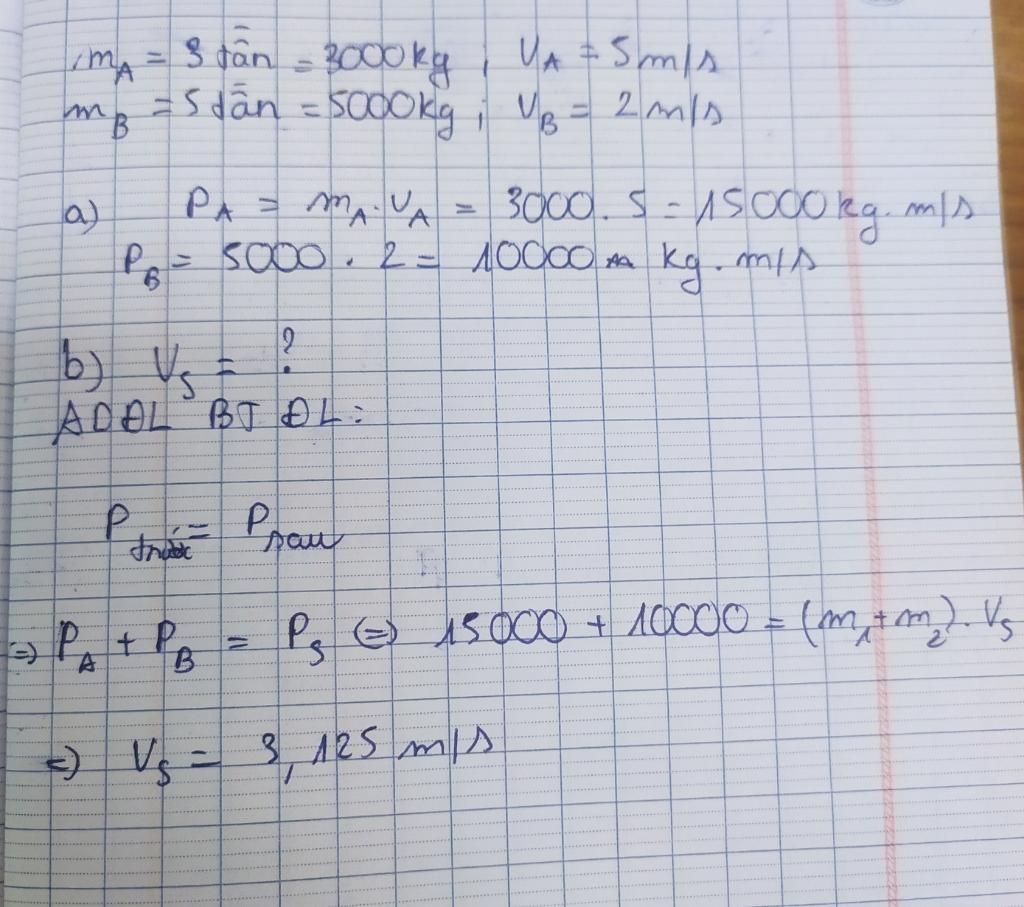 m_A = 3 tấn = 3000kg ; V_A = 5 m/s
m_B = 5 tấn = 5000kg ; V_B = 2 m/s
a) P_A = m_A . V_A = 3000 . 5 = 15000 kg . m/s
P_B = 5000 . 2 = 10000 kg . m/s
b) V_S = ?
ADĐL BT ĐL :
P_trước = P_sau
=> P_A + P_B = P_S <=> 15000 + 10000 = (m_1 + m_2) . V_S
<=> V_S = 3,125 m/s